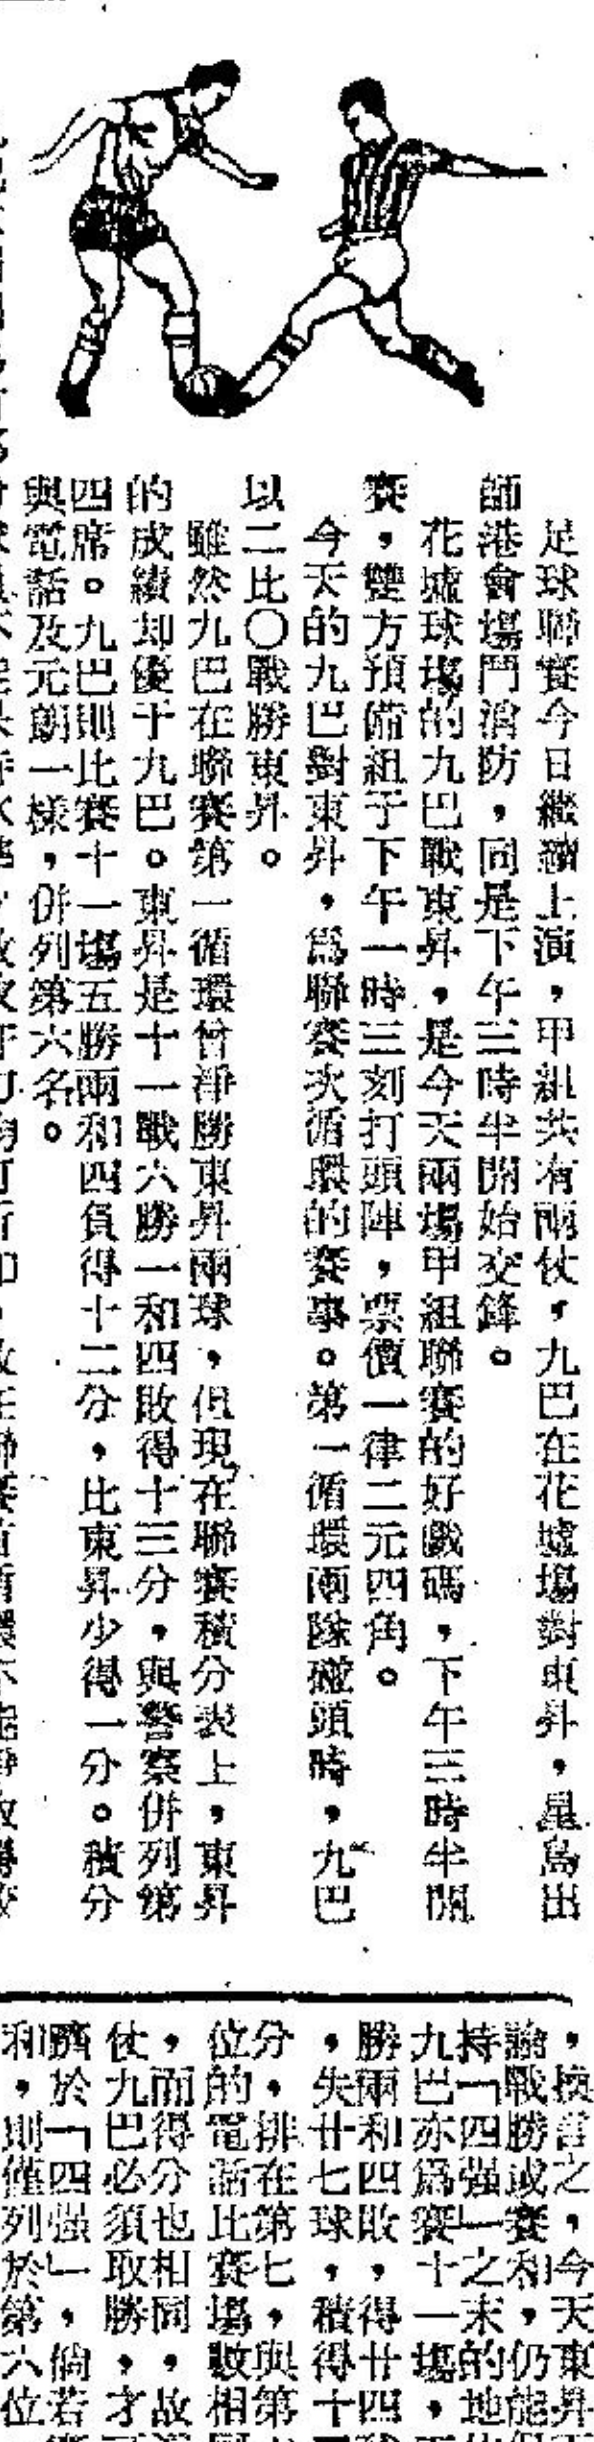 足球聯賽今日繼續上演，甲組共有兩仗，九巴在花墟場對東昇，星島出
師港會塲鬥消防，同是下午三時半開始交鋒。
花墟球塲的九巴戰東昇，是今天兩塲甲組聯賽的好戲碼，下午三時半開
賽，雙方預備組于下午一時三刻打頭陣，票價一律二元四角。
今天的九巴對東昇，爲聯賽次循環的賽事。第一循環兩隊碰頭時，九巴
以二比〇戰勝東昇。
雖然九巴在聯賽第一循環曾淨勝東昇兩球，但現在聯賽積分表上，東昇
的成績却優于九巴。東昇是十一戰六勝一和四敗得十三分，與警察併列第
四席。九巴則比賽十一塲五勝兩和四負得十二分，比東昇少得一分。積分
與電話及元朗一樣，併列第六名。
，換言之，今天東昇
論戰勝或賽和，仍能
持「四强」之末的地
九巴亦爲賽十一塲，
勝兩和四敗，得廿四
，失廿七球，積得十
分，排在第七，與第
位的電話比賽塲數相
，而得分也相同，故
仗九巴必須取勝，才
躋於「四强」，倘若
和，則僅列於第六位